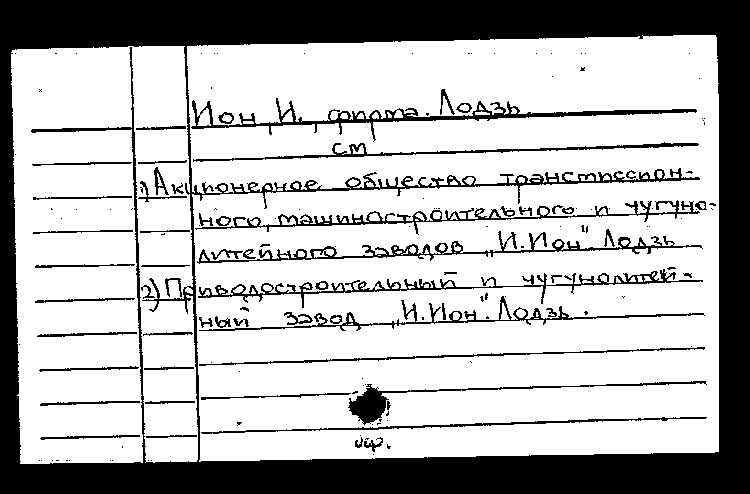 Ион, И., фирма. Лодзь.
см
1) Акционерное общество трансмиссион-
ного, машиностроительного и чугуно-
литейного заводов „И.Ион". Лодзь
2) Приводостроительный и чугунолитей-
ный завод „И.Ион". Лодзь.